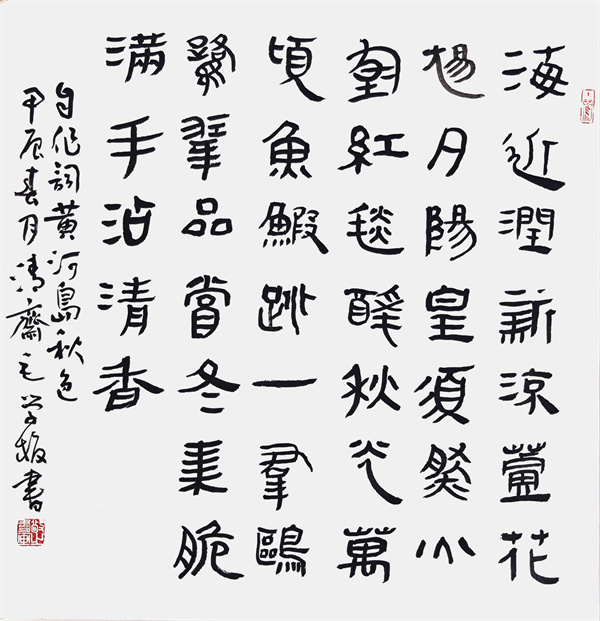 海近潤新涼蘆花
揚月陽皇須然火
紅毯醉秋光萬
頃魚鰕跳一羣鷗
品嘗冬棗脆
滿手沾清香
自作詞黃河島秋色
甲辰春月清齋毛学書